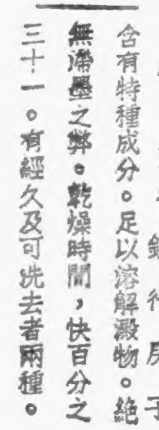 含有特種成分。足以溶解澱物。絶
無滯墨之弊。乾燥時間，快百分之
三十一。有經久及可洗去者兩種。